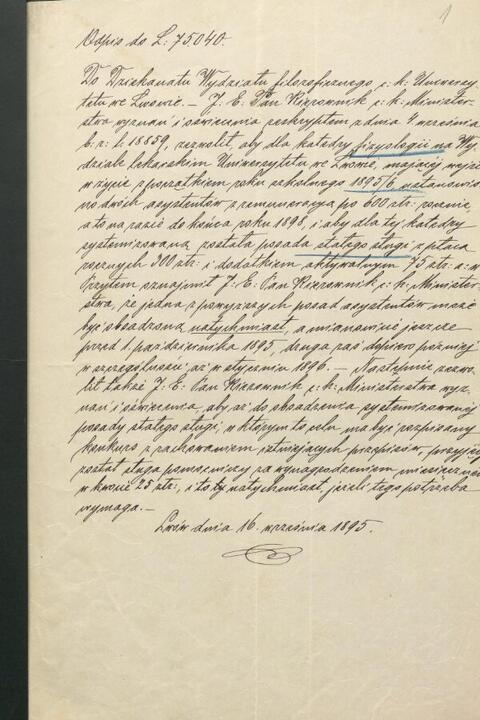 1
Odpis do L: 75.040.
Do Dziekanatu Wydziału filozoficznego c: k: Uniwersy-
tetu we Lwowie. — J. E. Pan Kierownik c: k: Minister-
stwa wyznań i oświecenia reskryptem z dnia 4 września
b: r: l: 18859, zezwolił, aby dla katedry fizyologii na Wy-
dziale lekarskim Uniwersytetu we Lwowie, mającej wejść
w życie z początkiem roku szkolnego 1895/6 ustanowio-
no dwóch asystentów z remuneracyą po 600 złr: rocznie,
a to na razie do końca roku 1898, i aby dla tej katedry
systemizowaną została posada stałego sługi z płacą
rocznych 300 złr: i dodatkiem aktywalnym 75 złr: a: w:
Przytem oznajmił J: E: Pan Kierownik c: k: Minister-
stwa, że jedna z powyższych posad asystentów może
być obsadzoną natychmiast, a mianowicie jeszcze
przed 1. października 1895, druga zaś dopiero później
w szczególności, aż w styczniu 1896. — Następnie zezwo-
lił także J: E: Pan Kierownik c: k: Ministerstwa wyz-
nań i oświecenia, aby aż do obsadzenia systemizowanej
posady stałego sługi, w którym to celu ma być rozpisany
konkurs z zachowaniem istniejących przepisów, przyjęty
został sługa pomocniczy za wynagrodzeniem miesięcznem
w kwocie 25 złr:, i to tej natychmiast, jeżeli tego potrzeba
wymaga. —
Lwów dnia 16. września 1895.